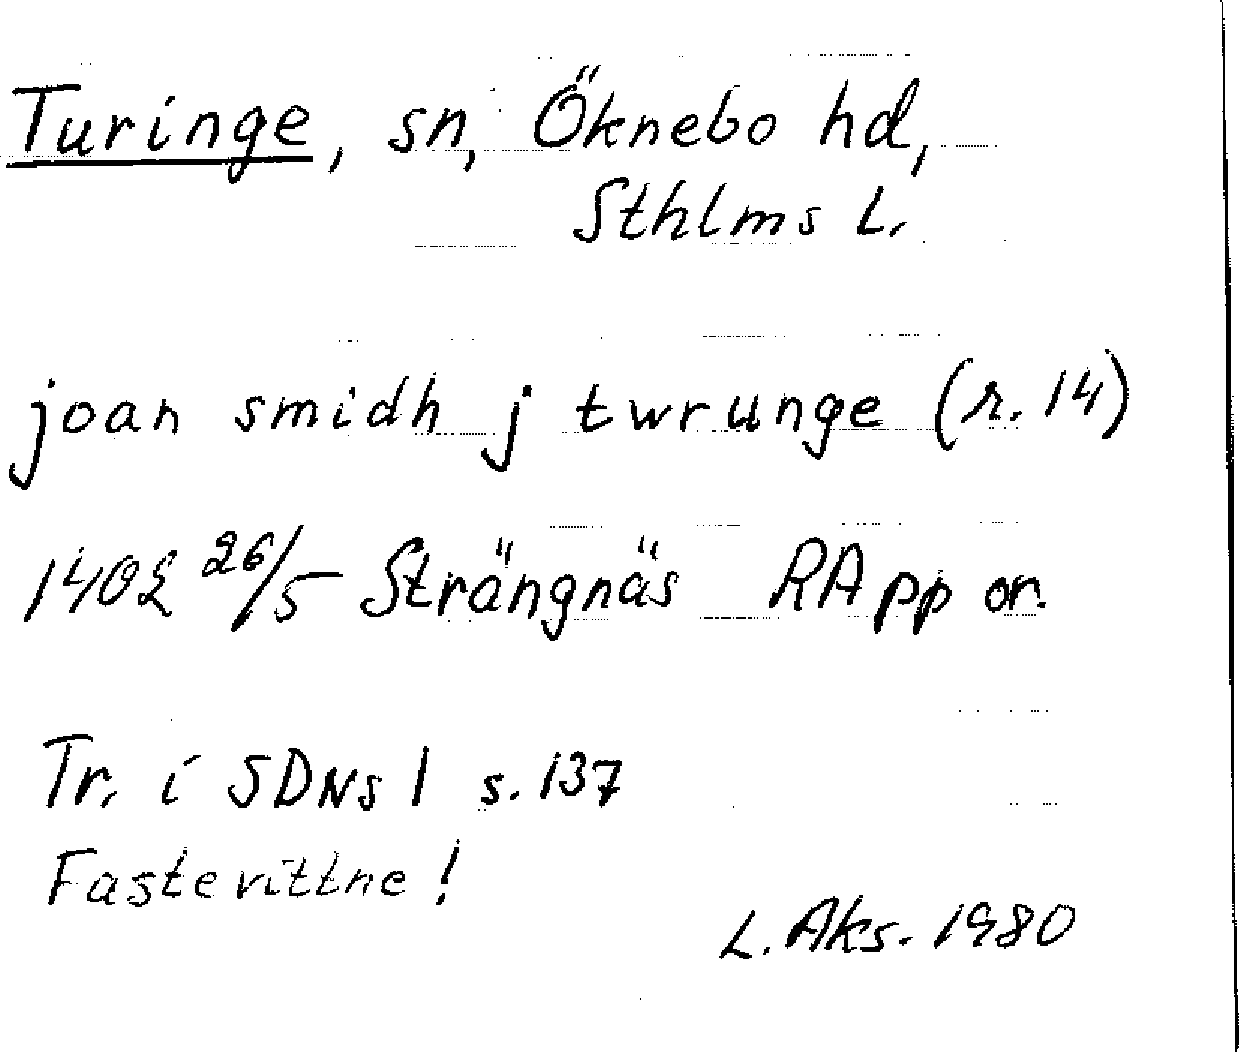 Turinge, sn, Öknebo hd,
Sthlms L.
joan smidh j twrunge (r. 14)
1402 26/5 Strängnäs RApp or.
Tr. i SDNs 1 s. 137
Fastevittne!
L. Aks. 1980